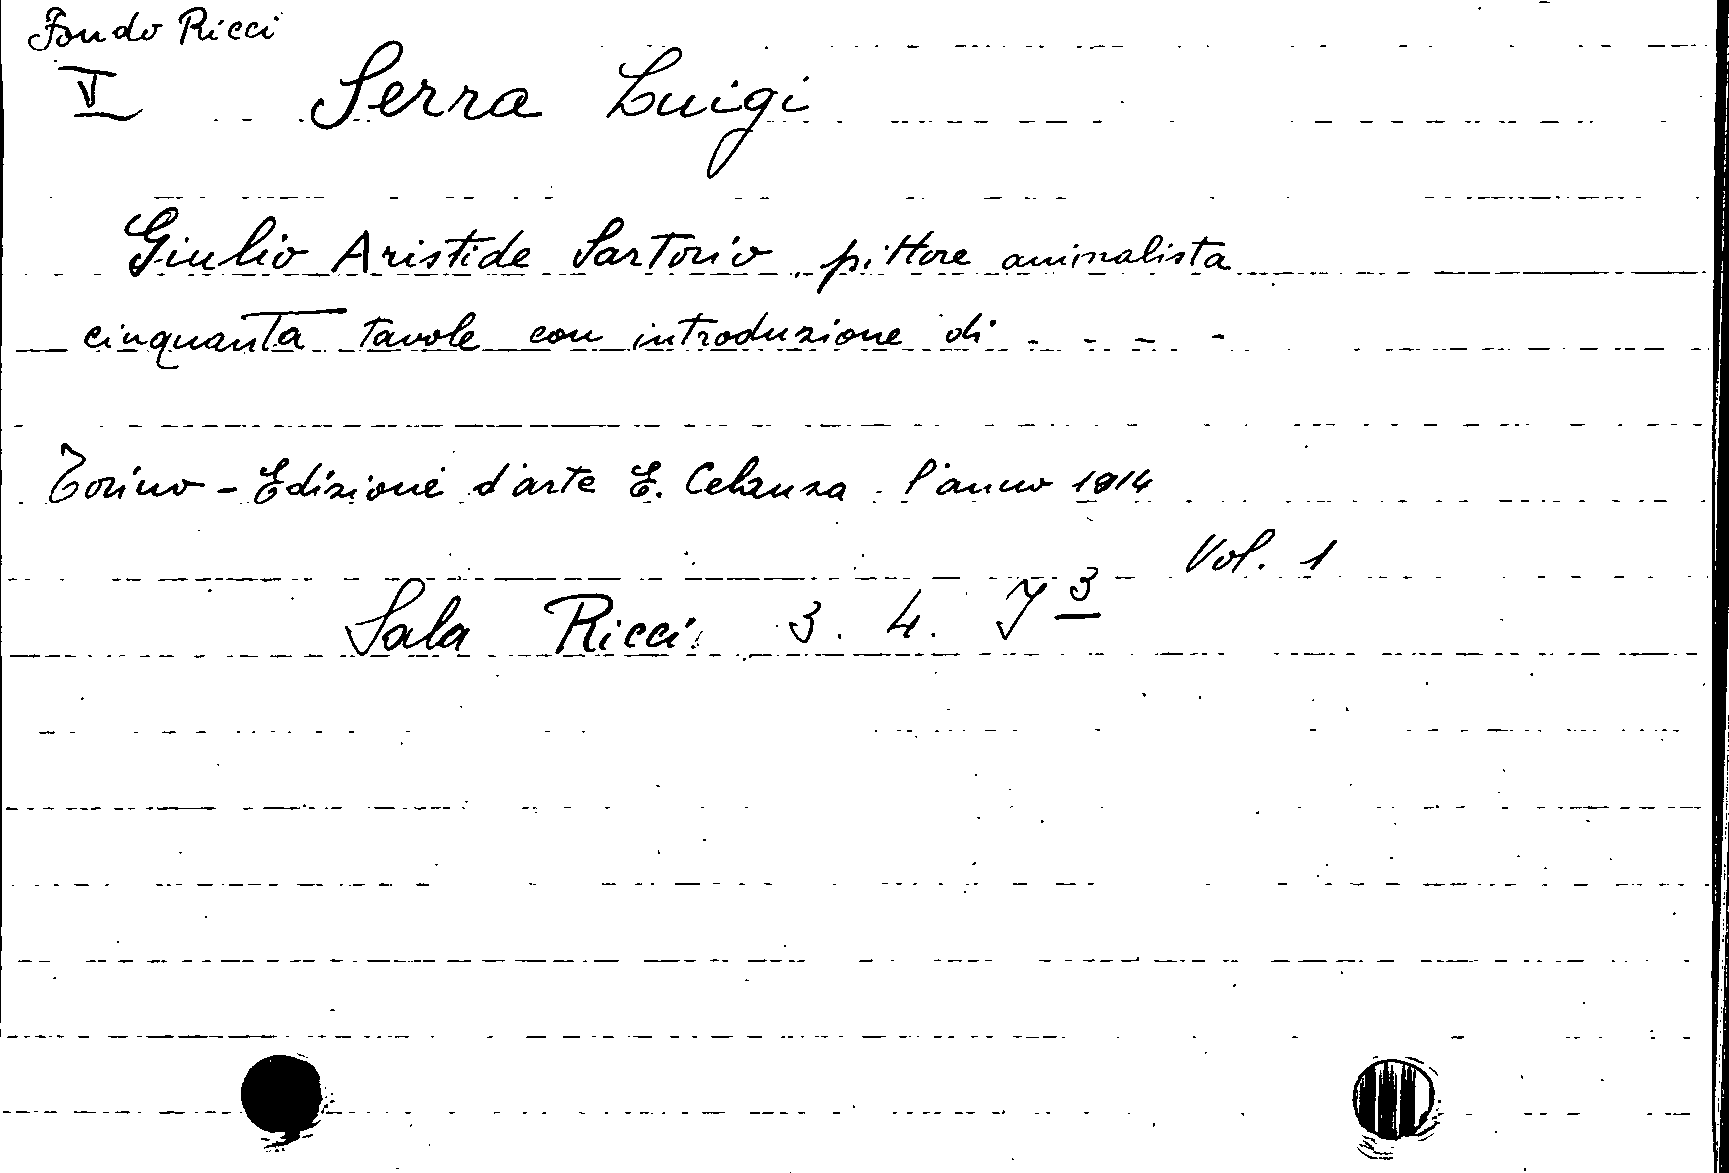 Fondo Ricci
V Serra Luigi
Giulio Aristide Sartorio, pittore animalista
cinquanta tavole con introduzione di - - - -
Torino - Edizione d'arte E. Celanza. l'anno 1914
Vol. 1
Sala Ricci. 3. 4. J 3